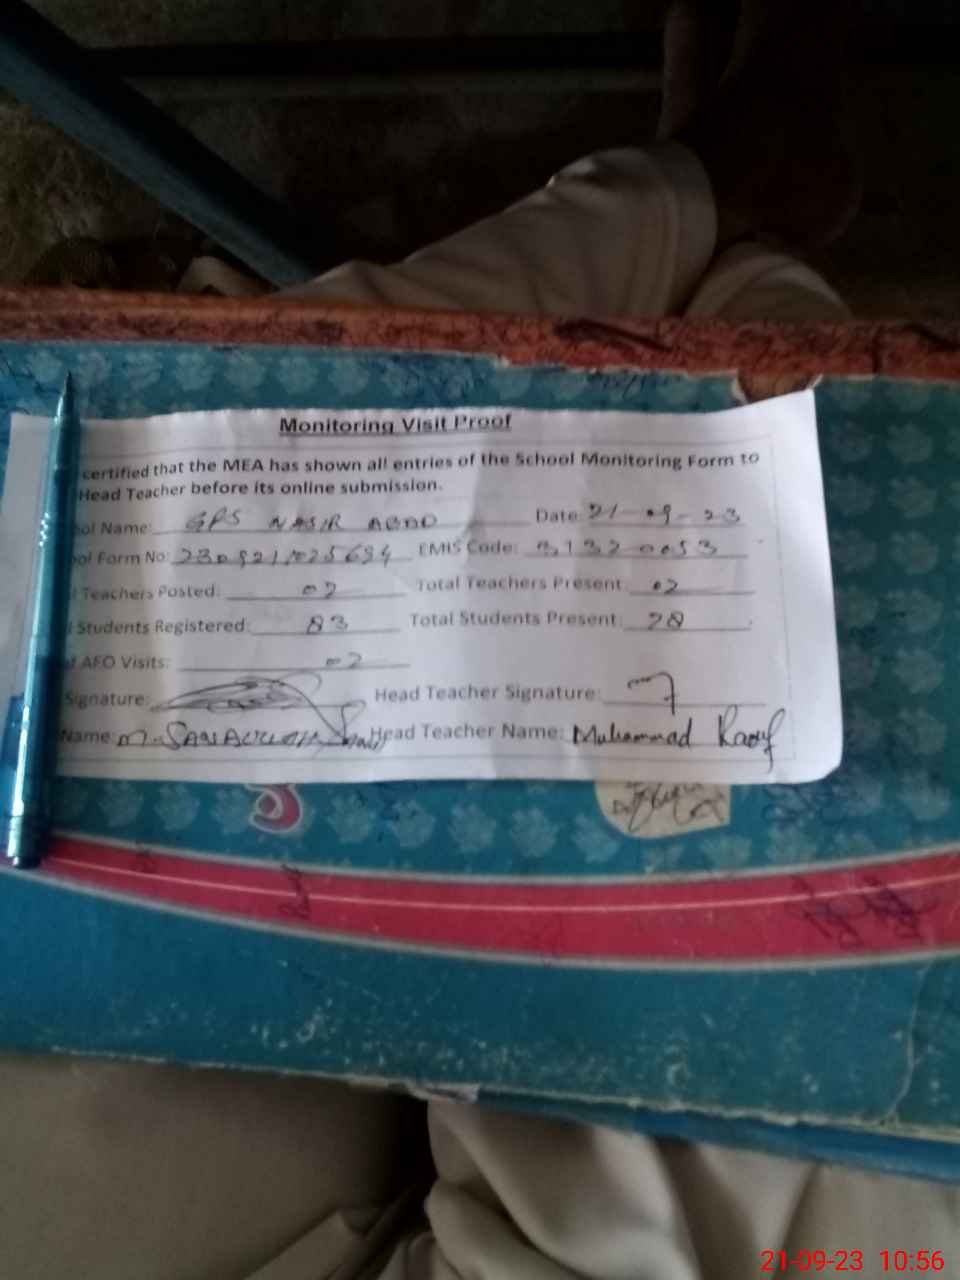 Monitoring Visit Proof
certified that the MEA has shown all entries of the School Monitoring Form to
Head Teacher before its online submission.
ool Name: GPS NASIR ABAD Date: 21-09-23
ool Form No: EMIS Code: 31320053
l Teachers Posted: 02 Total Teachers Present: 02
l Students Registered: 83 Total Students Present: 28
f AFO Visits: 02
Signature: Head Teacher Signature:
Name: M. SANAULLAH Head Teacher Name: Muhammad Raouf
21-09-23 10:56